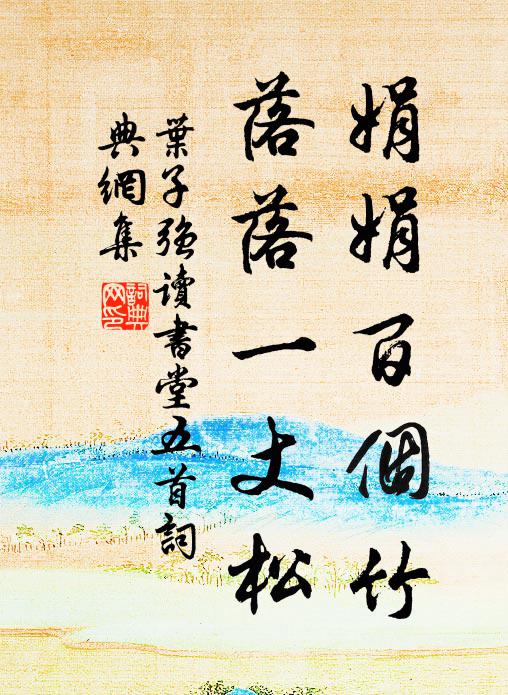 娟娟百個竹
落落一丈松
葉子強讀書堂五首詞
典網集
詞典
网印